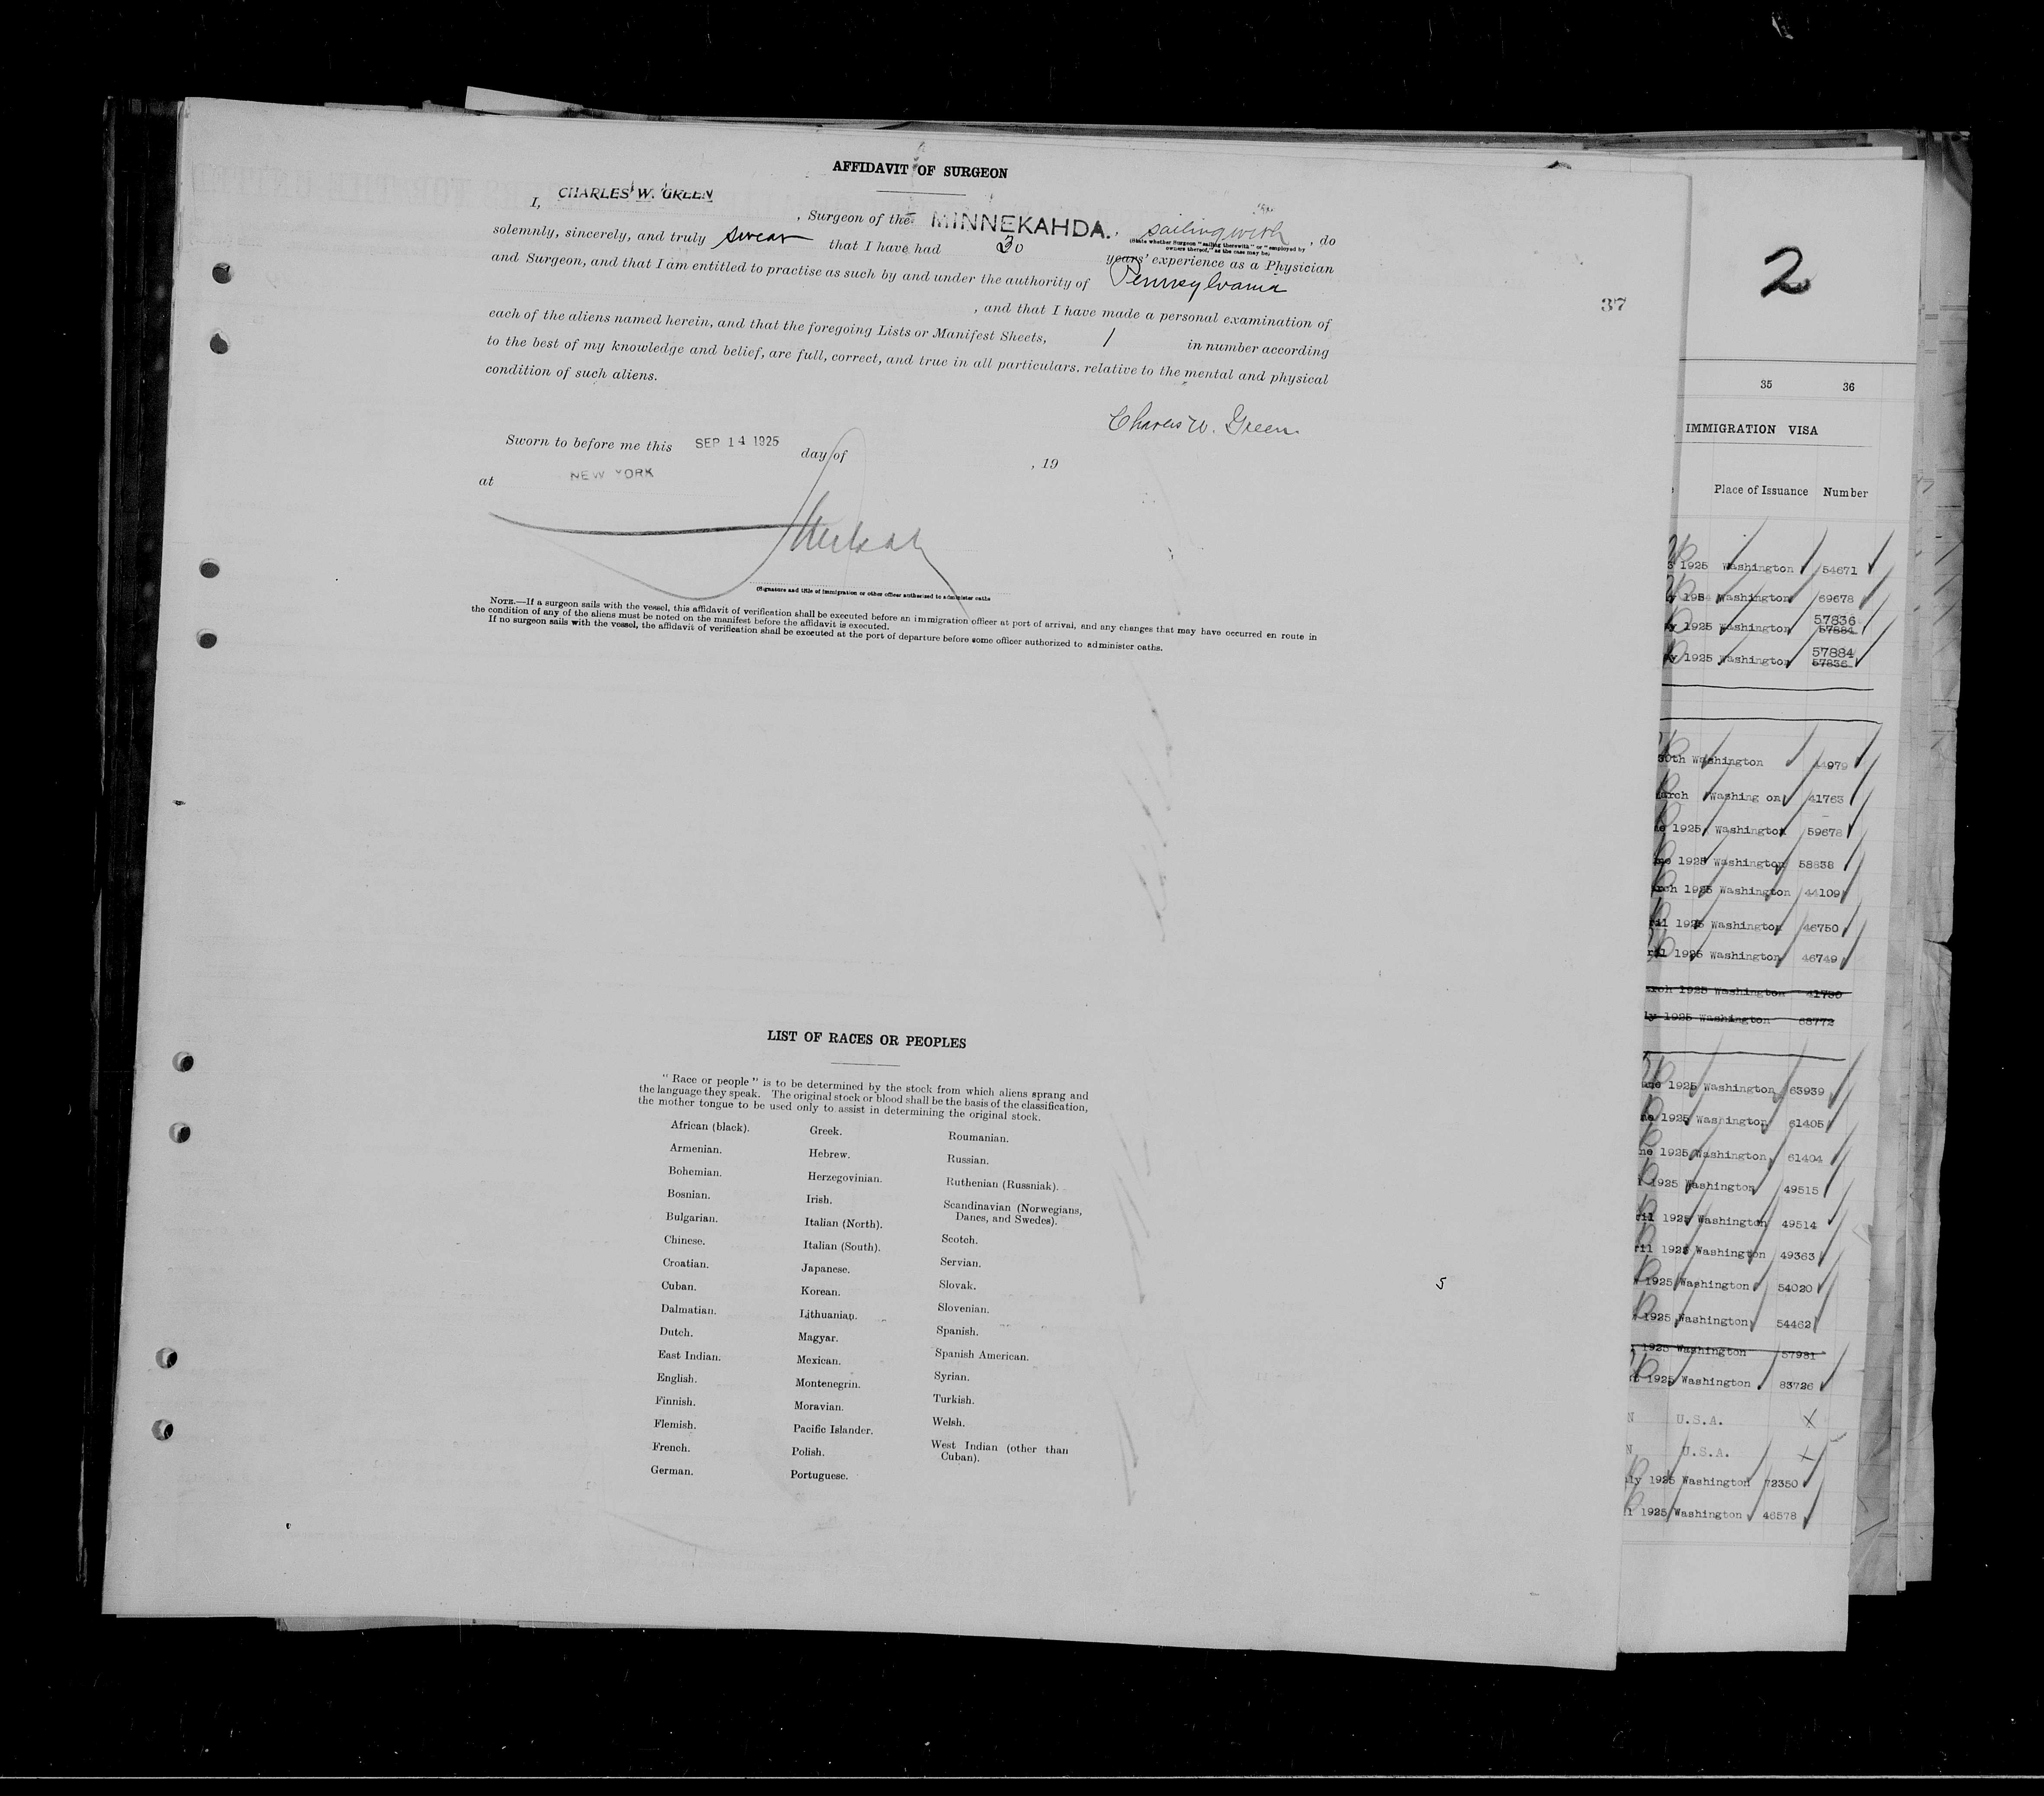 AFFIDAVIT OF SURGEON
I, CHARLES W. GREEN , Surgeon of the MINNEKAHDA. , sailing with , do
(State whether Surgeon "sailing therewith" or "employed by
owners thereof," as the case may be)
solemnly, sincerely, and truly swear that I have had 30 years' experience as a Physician
and Surgeon, and that I am entitled to practise as such by and under the authority of Pennsylvania
, and that I have made a personal examination of
each of the aliens named herein, and that the foregoing Lists or Manifest Sheets, 1 in number according
to the best of my knowledge and belief, are full, correct, and true in all particulars. relative to the mental and physical
condition of such aliens.
Charles W. Green
Sworn to before me this SEP 14 1925 day of , 19
at NEW YORK
(Signature and title of immigration or other officer authorized to administer oaths
NOTE.—If a surgeon sails with the vessel, this affidavit of verification shall be executed before an immigration officer at port of arrival, and any changes that may have occurred en route in
the condition of any of the aliens must be noted on the manifest before the affidavit is executed.
If no surgeon sails with the vessel, the affidavit of verification shall be executed at the port of departure before some officer authorized to administer oaths.
LIST OF RACES OR PEOPLES
"Race or people" is to be determined by the stock from which aliens sprang and
the language they speak. The original stock or blood shall be the basis of the classification,
the mother tongue to be used only to assist in determining the original stock.
African (black).
Armenian.
Bohemian.
Bosnian.
Bulgarian.
Chinese.
Croatian.
Cuban.
Dalmatian.
Dutch.
East Indian.
English.
Finnish.
Flemish.
French.
German.
Greek.
Hebrew.
Herzegovinian.
Irish.
Italian (North).
Italian (South).
Japanese.
Korean.
Lithuanian.
Magyar.
Mexican.
Montenegrin.
Moravian.
Pacific Islander.
Polish.
Portuguese.
Roumanian.
Russian.
Ruthenian (Russniak).
Scandinavian (Norwegians,
Danes, and Swedes).
Scotch.
Servian.
Slovak.
Slovenian.
Spanish.
Spanish American.
Syrian.
Turkish.
Welsh.
West Indian (other than
Cuban).
5
37
2
35 36
IMMIGRATION VISA
Place of Issuance Number
1925 Washington 54671
Washington 69678
57836
1925 Washington 57884
57884
1925 Washington 57836
30th Washington 44979
Washing on 41763
1925 Washington 59678
1925 Washington 58838
1925 Washington 44109
1925 Washington 46750
1925 Washington 46749
1925 Washington 41730
1925 Washington 68772
1925 Washington 63939
1925 Washington 61405
1925 Washington 61404
1925 Washington 49515
1925 Washington 49514
1925 Washington 49363
1925 Washington 54020
1925 Washington 54462
1925 Washington 57981
1925 Washington 83726
N U.S.A. X
N U.S.A. X
1925 Washington 72350
1925 Washington 46578